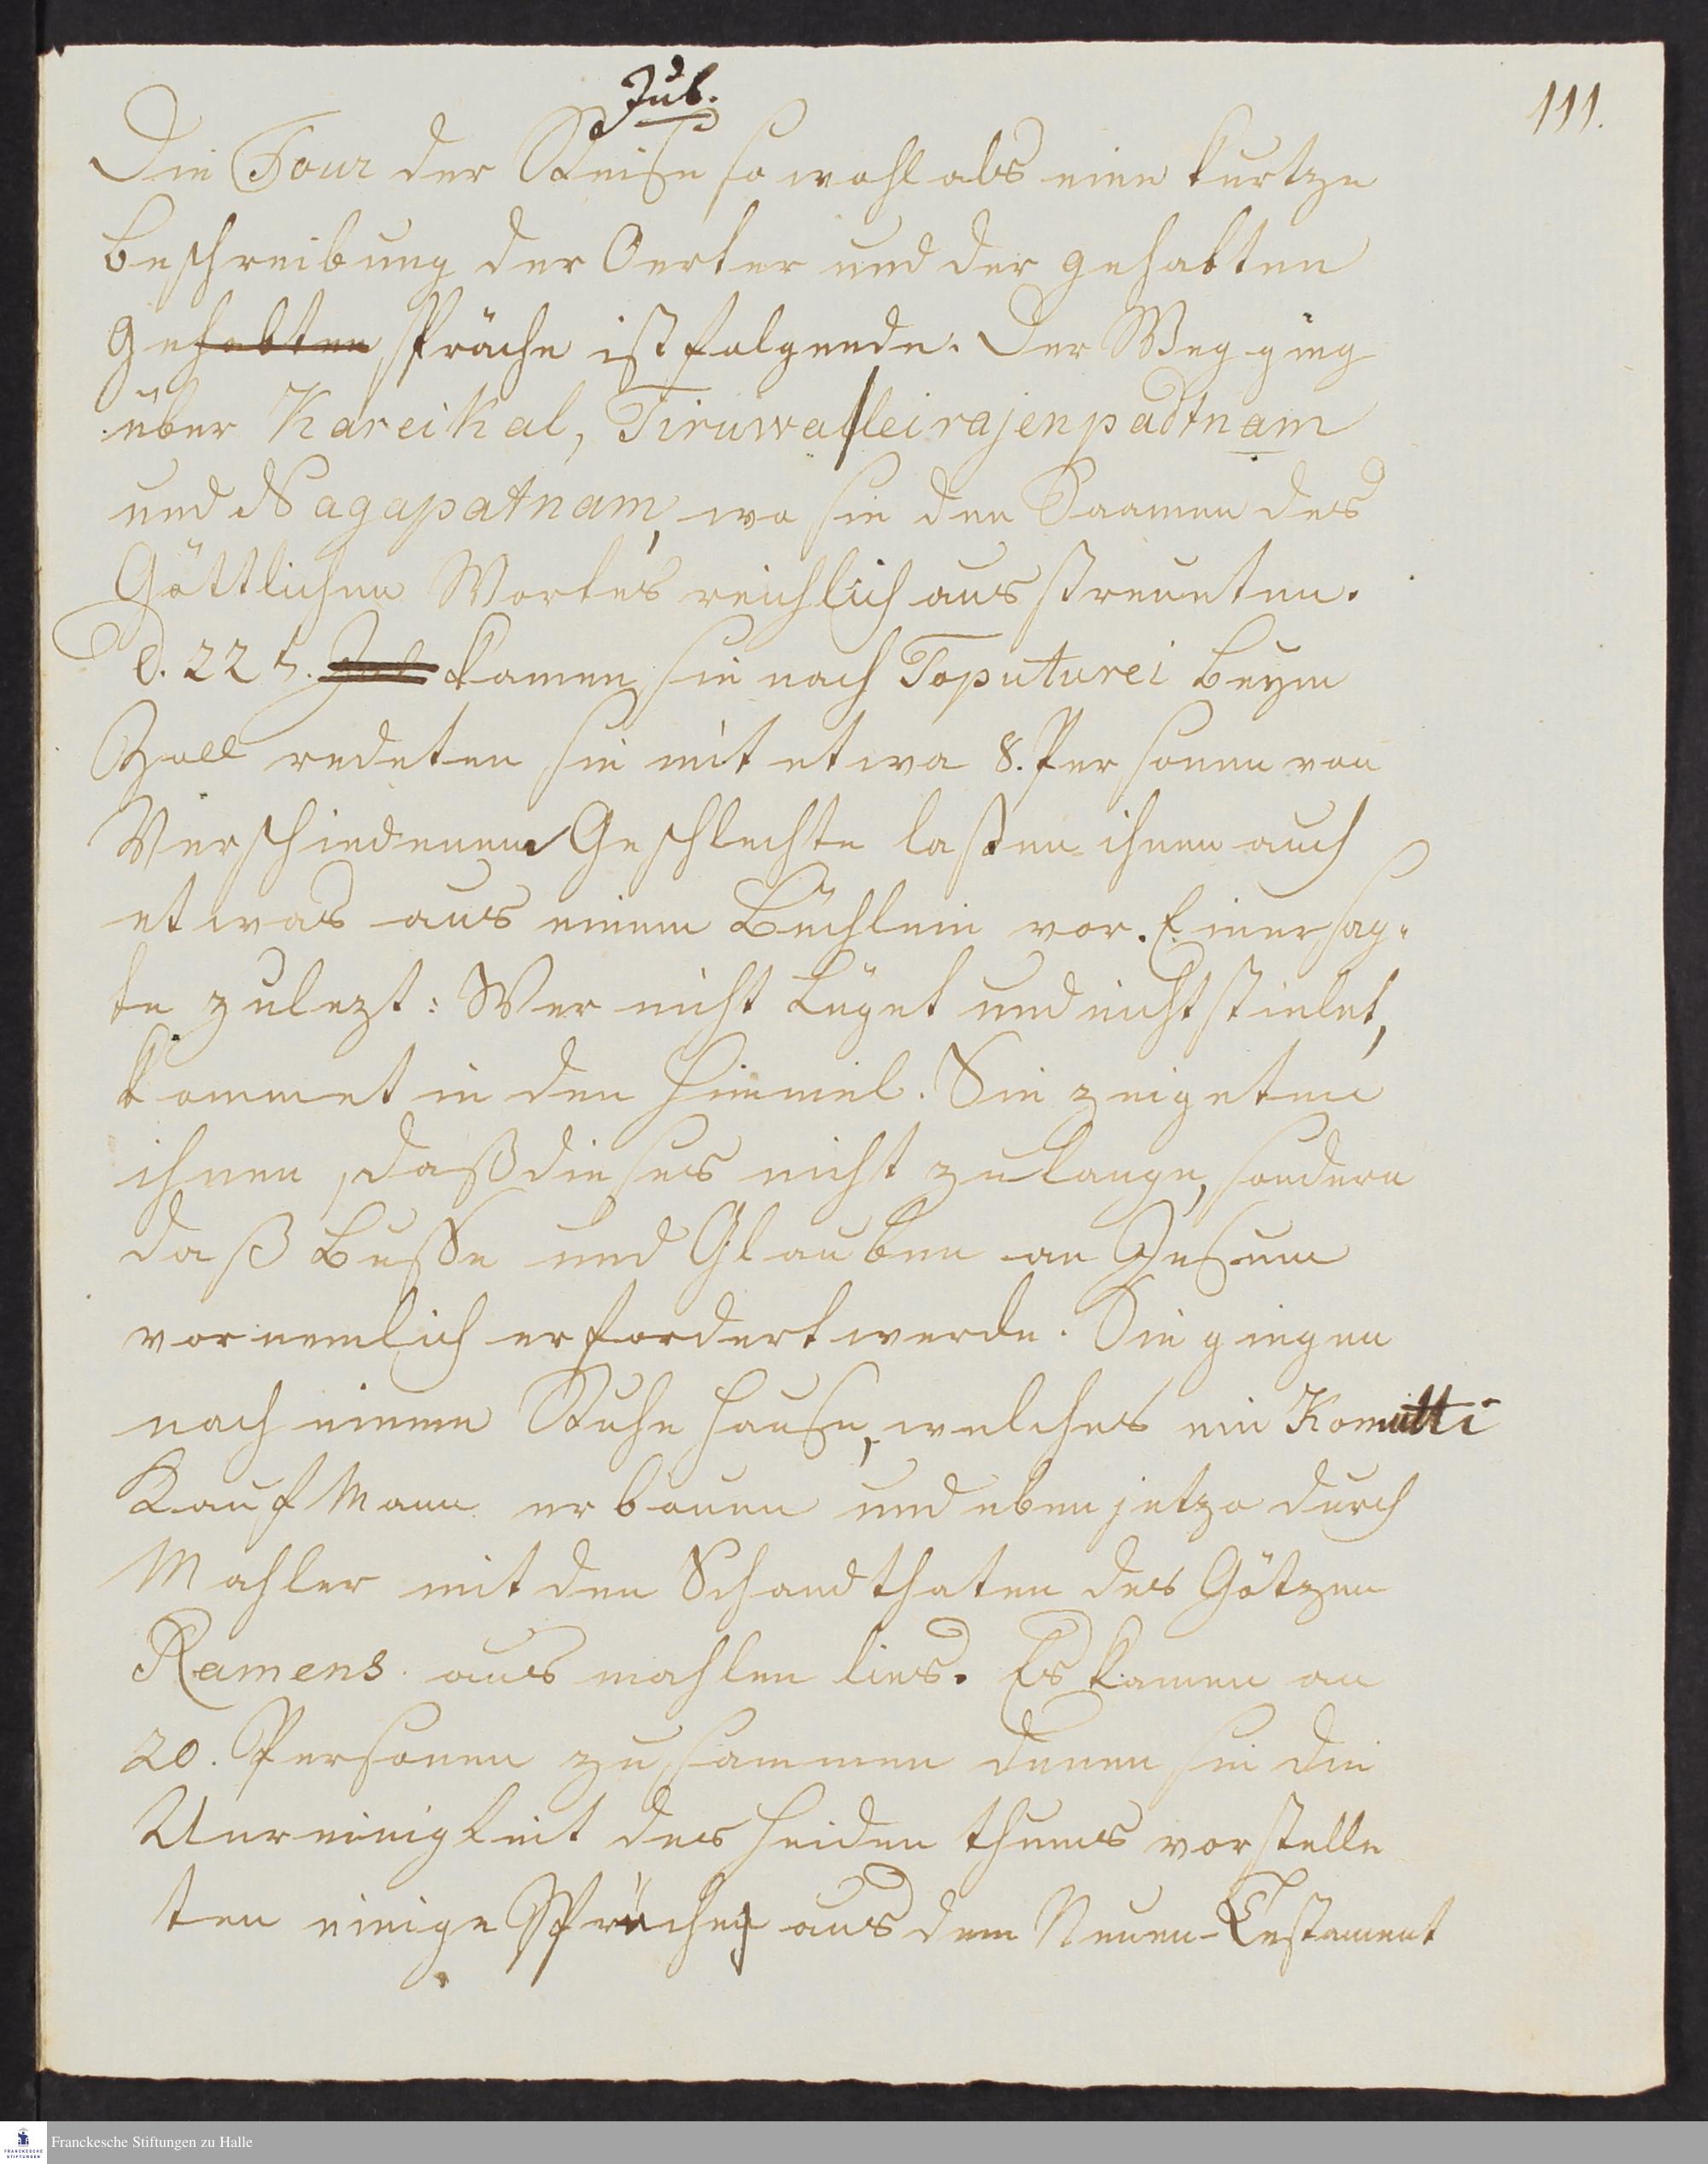 Jul.
111.
Die Tour der Reise so wohl als eine kurtze
beschreibung der Oerter und der gehabten
Gehabten spräche ist folgende. Der Weg ging
über Kareikal, Tiruwalleirajenpadtnam
und Nagapatnam, wo sie den Saamen des
Göttlichen Wortes reichlich ausstreueten.
d. 22 t. Jul kamen sie nach Toputurei beym
Zoll redeten sie mit etwa 8. Personen von
Verschiedenem Geschlechte lasten ihnen auch
etwas aus einem Büchlein vor. Einer sag-
te zulezt: Wer nicht Lüget und nicht stielet,
kommet in den Himmel. Sie zeigeten
ihnen, daß dieses nicht zulange, sondern
daß Busse und Glauben an Jesum
vornemlich erfordert werde. Sie giengen
nach einem Ruhe Hause, welches ein Komutti
Kauf Mann erbauen und eben jetzo durch
Mahler mit den Schandthaten des Götzen
Ramens ausmahlen lies. Es kamen an
20. Personen zusammen denen sie die
Unreinigkeit des Heidenthums vorstelle
ten einige Sprüche aus dem Neuen-Testament
Franckesche Stiftungen zu Halle
FRANCKESCHE
STIFTUNGEN